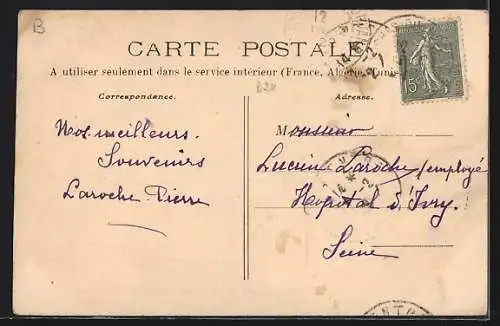 B
CARTE POSTALE
A utiliser seulement dans le service intérieur (France, Algérie, Tunis
Correspondance.
Adresse.
Nos meilleurs
Souvenirs
Laroche Pierre
Monsieur
Lucien Laroche employé
Hopital d'Ivry.
Seine
15c
14 * 2